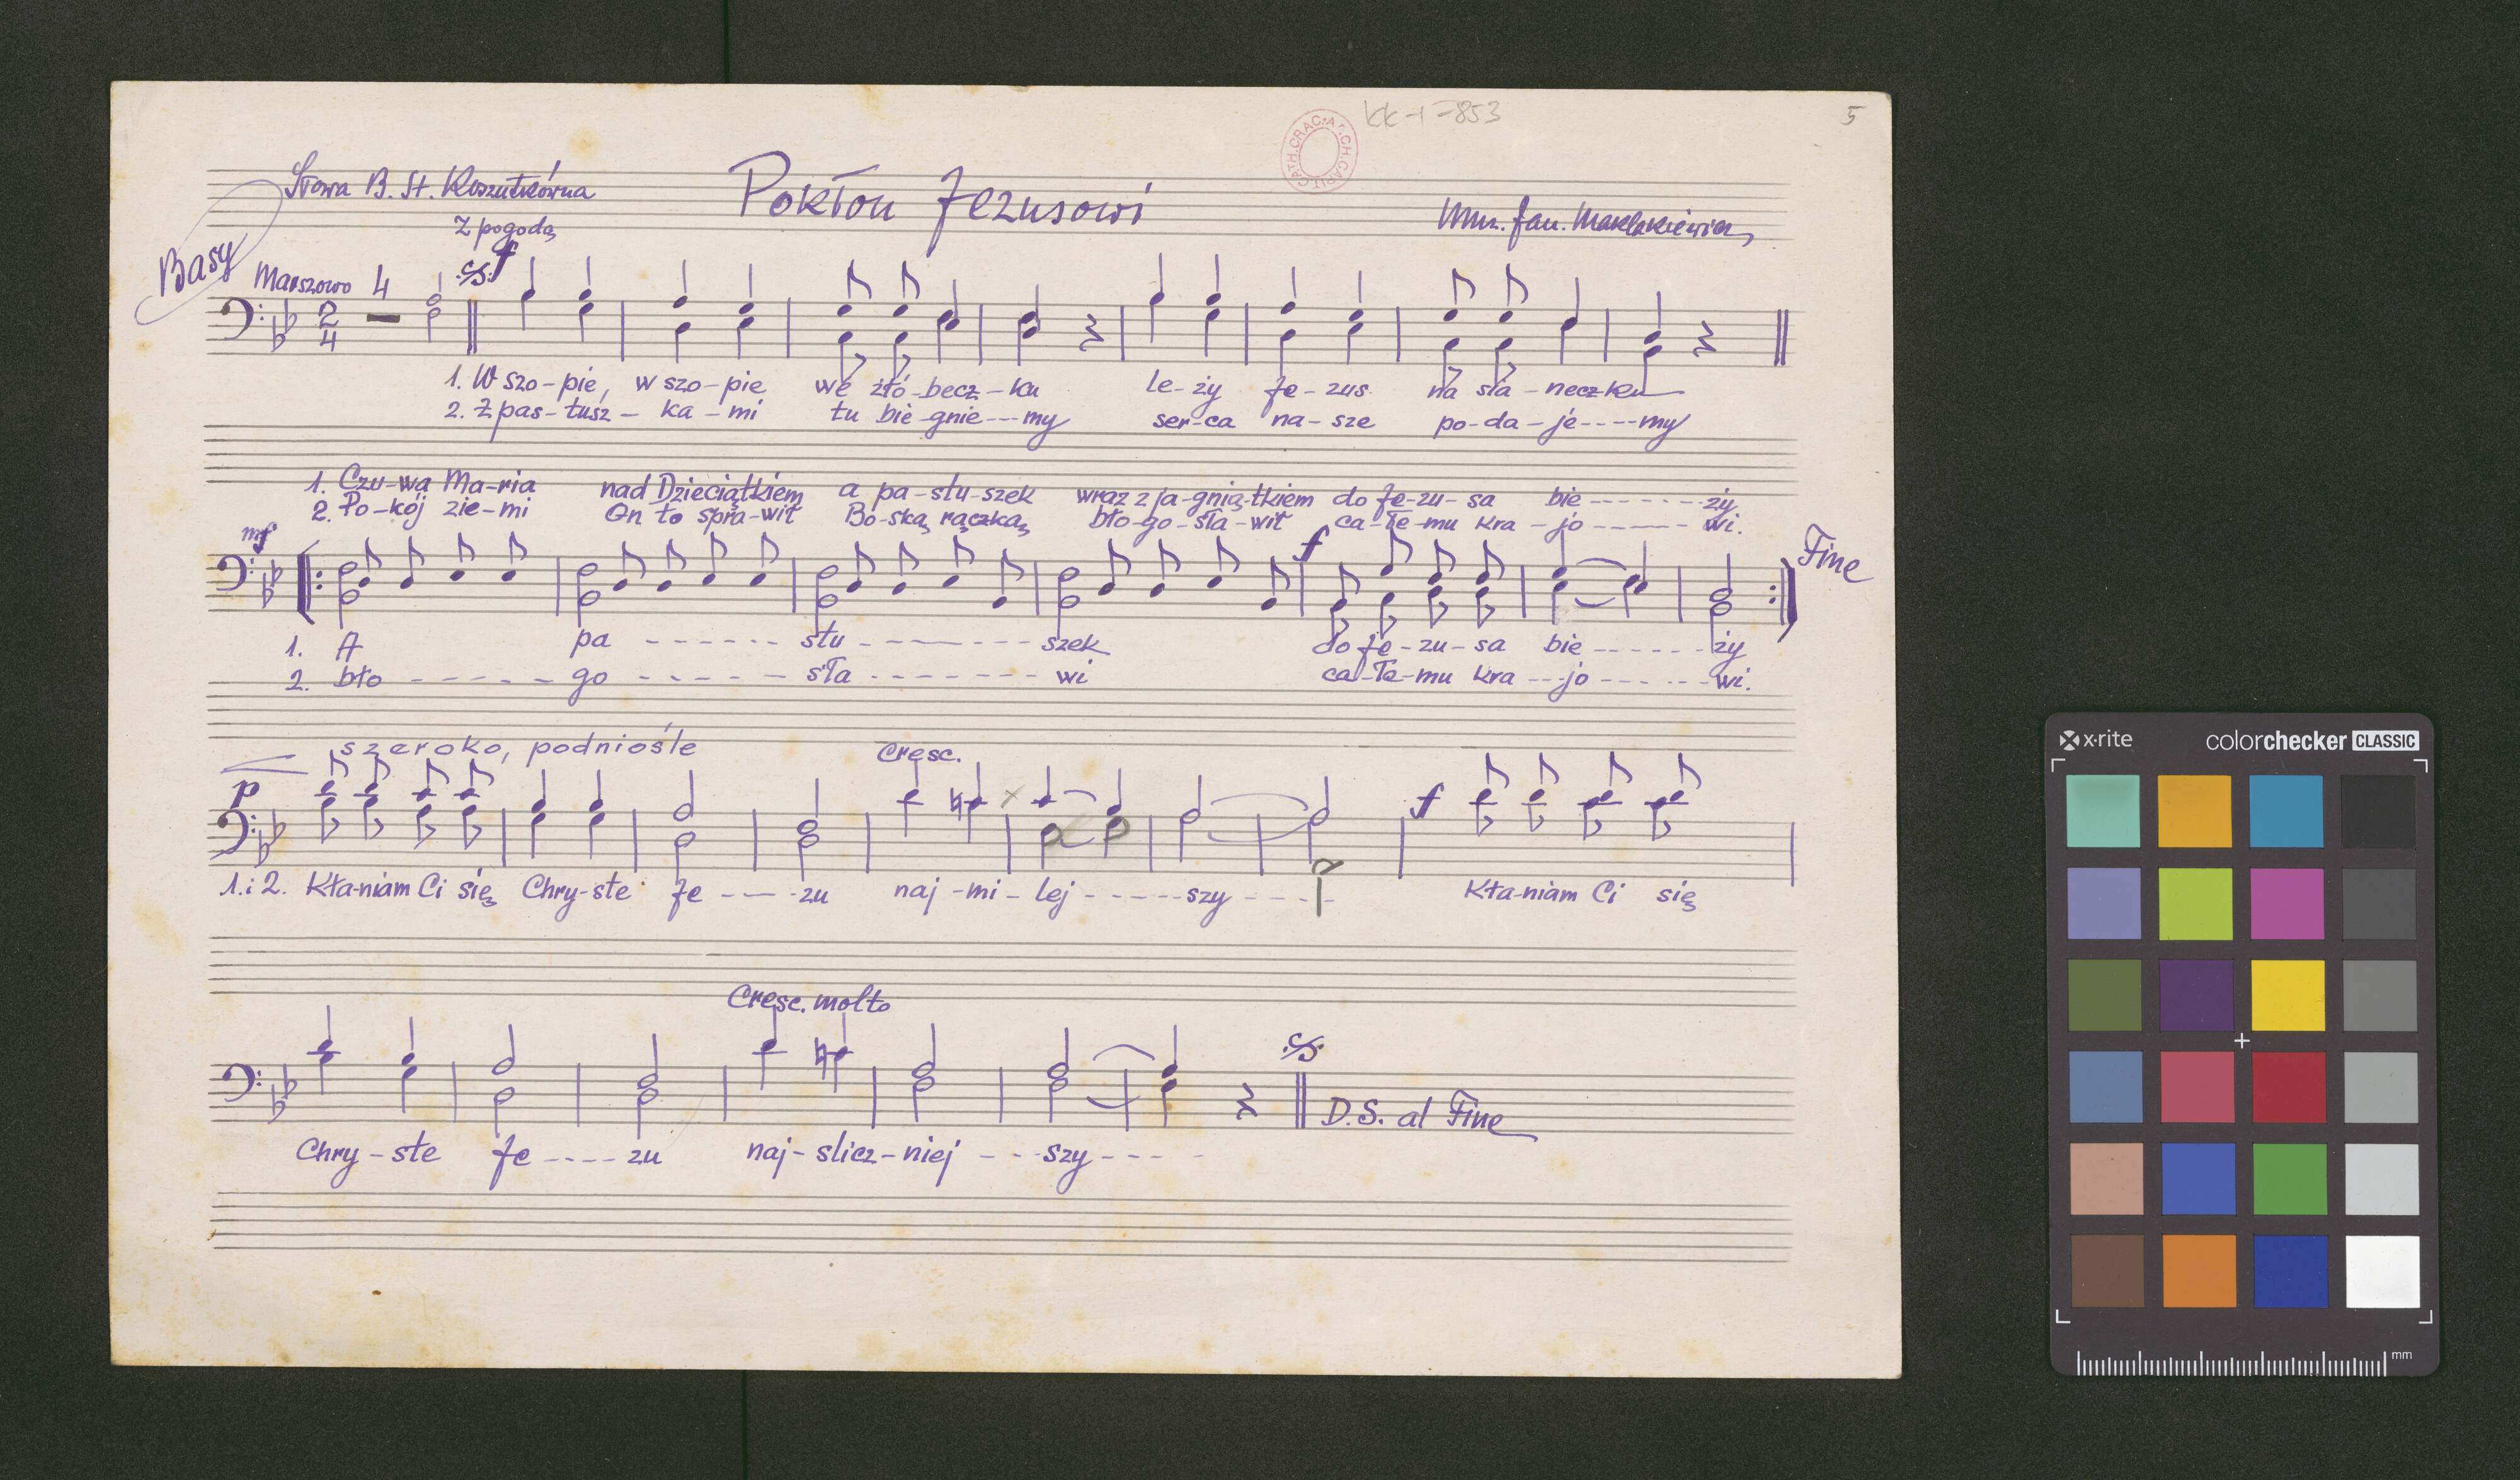 KK-I-853
5
CATH.CRAC.
Słowa B. St. Koszutkówna
Pokłon Jezusowi
Muz. Jan. Maklakiewicz
Z pogodą
Basy
Marszowo 4
f
2
4
1. W szo-pie, w szo-pie we żłó-becz-ku le-ży Je-zus na sia-necz-ku
2. Z pas-tusz-ka-mi tu bie-gnie---my ser-ca na-sze po-da-je----my
1. Czu-wa Ma-ria nad Dzieciątkiem a pa-stu-szek wraz z ja-gnią-tkiem do Je-zu-sa bie ------- ży
2. Po-kój zie-mi On to spra-wił Bo-ską rączką bło-go-sła-wił ca-łe-mu kra-jo ------ wi.
mf
f
Fine
1. A pa ------ stu ------ szek do Je-zu-sa bie ------ ży
2. bło ----- go ----- sła ------ wi ca-łe-mu kra---jo ------ wi.
szeroko, podniośle
Cresc.
p
f
1. i 2. Kła-niam Ci się Chry-ste Je ---- zu naj-mi-lej ----- szy ---- Kła-niam Ci się
Cresc. molto
D.S. al Fine
Chry-ste Je ---- zu naj-slicz-niej --- szy ----
x·rite
colorchecker CLASSIC
mm